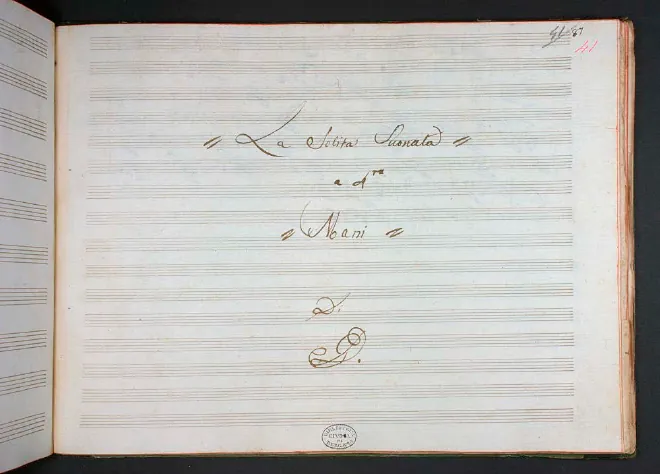 La Solita Suonata
a 4ra
Mani
D.
G.
41